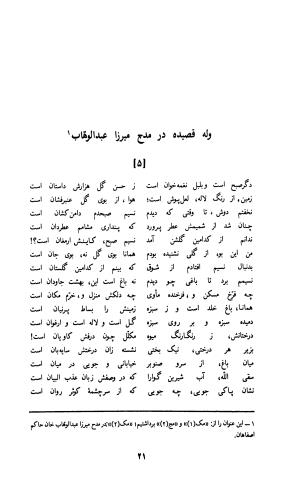 وله قصیده در مدح میرزا عبدالوهاب ۱
[۵]
دگرصبح است و بلبل نغمه‌خوان است ز حسن گل هزارش داستان است
زمین، از رنگ لاله، لعل‌پوش است؛ هوا، از بوی گل عنبرفشان است
نخفتم دوش، تا وقتی که دیدم نسیم صبحدم دامن‌کشان است
چنان شد از شمیمش عطر پرورد که پنداری مشامم عطردان است
ندانم از کدامین گلشن آمد نسیم صبح، کاینش ارمغان است؟!
من این بو، از گلی نشنیده بودم همانا بوی گل نه، بوی جان است
بدنبال نسیم افتادم از شوق که بینم از کدامین گلستان است
نسیمم برد تا باغی چو دیدم نه باغ است این، بهشت جاودان است
چه فرّخ مسکن و، فرخنده مأوی چه دلکش منزل و، خرّم مکان است
همانا، باغ خلد است و ز سبزه زمینش را بساط پرنیان است
دمیده سبزه و بر روی سبزه گل است و لاله است و ارغوان است
درختانش، ز رنگارنگ میوه مکلّل چون درفش کاویان است!
بزیر هر درختی، نیک بختی نشسته زان درختش سایه‌بان است
میان باغ، از سرو صنوبر خیابانی و جویی در میان است
سقی اللّه، آب شیرین گوارا که در وصفش زبان عذب البیان است
نشان پاکی جویی، چه جویی که از سرچشمهٔ کوثر روان است
۱ – این عنوان را از: «مک(۱)» و «مج(۲)» برداشتیم؛ «مک(۲)»:در مدح میرزا عبدالوهاب خان حاکم
اصفاهان.
۲۱